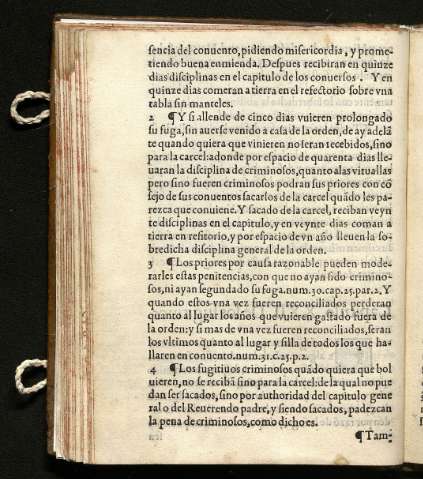 sencia del conuento, pidiendo misericordia, y prome-
tiendo buena enmienda. Despues recibiran en quinze
dias disciplinas en el capitulo de los conuersos. Y en
quinze dias comeran a tierra en el refectorio sobre vna
tabla sin manteles.
2 ¶ Y si allende de cinco dias vuieren prolongado
su fuga, sin auerse venido a casa de la orden, de ay adelã
te quando quiera que vinieren no seran recebidos, sino
para la carcel: adonde por espacio de quarenta dias lle-
uaran la disciplina de criminosos, quanto a las vituallas
pero sino fueren criminosos podran sus priores con cõ
sejo de sus conuentos sacarlos de la carcel quãdo les pa-
rezca que conuiene. Y sacado de la carcel, reciban veyn
te disciplinas en el capitulo, y en veynte dias coman a
tierra en refitorio, y por espacio de vn año lleuen la so-
bredicha disciplina general de la orden.
3 ¶ Los priores por causa razonable pueden mode-
rarles estas penitencias, con que no ayan sido crimino-
sos, ni ayan segundado su fuga. num. 30. cap. 25. par. 2. Y
quando estos vna vez fueren reconciliados perderan
quanto al lugar los años que vuieren gastado fuera de
la orden: y si mas de vna vez fueren reconciliados, seran
los vltimos quanto al lugar y silla de todos los que ha-
llaren en conuento. num. 31. c. 25. p. 2.
4 ¶ Los fugitiuos criminosos quãdo quiera que bol
uieren, no se recibã sino para la carcel: de la qual no pue
dan ser sacados, sino por authoridad del capitulo gene
ral o del Reuerendo padre, y siendo sacados, padezcan
la pena de criminosos, como dicho es.
¶ Tam-